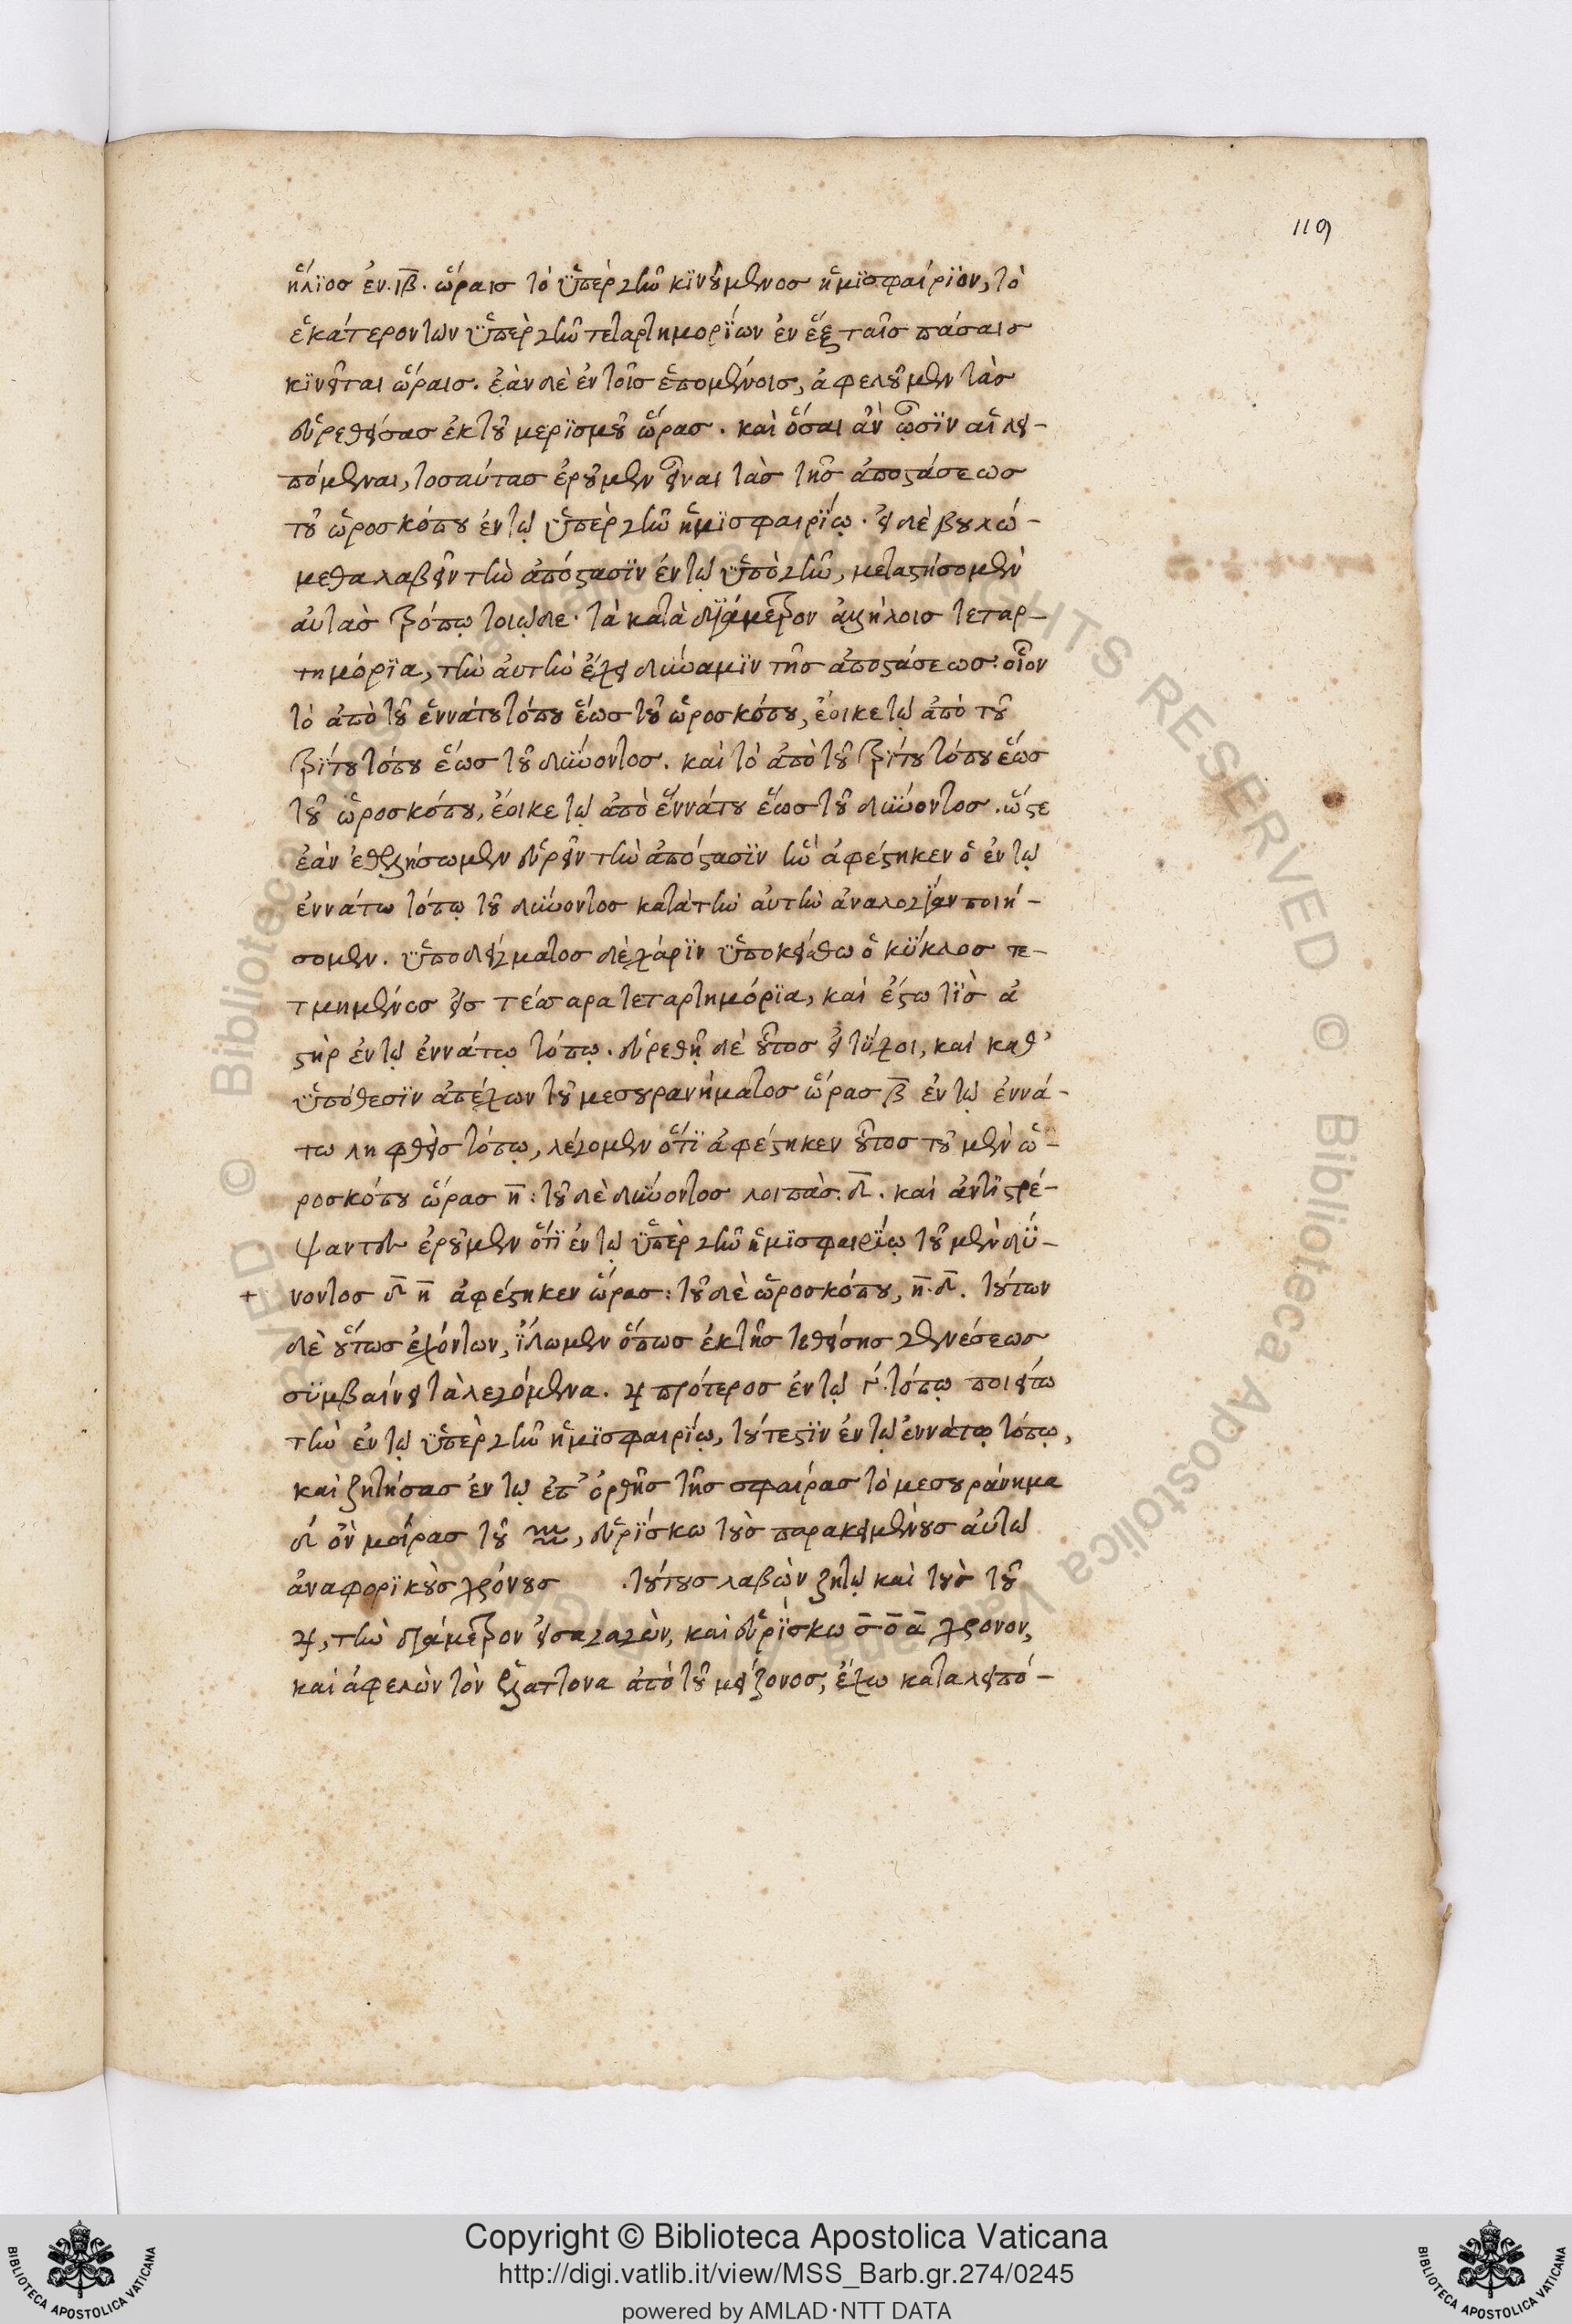 119
ἥλϊοσ ἐν .ιβ. ὥραισ τὸ ὑπὲρ γῆν κϊνούμενοσ ἡμϊσφαίρϊον, τὸ
ἑκάτερον τῶν ὑπὲρ γῆν τεταρτημορΐων ἐν ἓξ ταῖσ πάσαισ
κϊνεῖται ὥραισ. ἐὰν δὲ ἐν τοῖσ ἑπομένοισ, ἀφελοῦμεν τὰσ
εὑρεθείσασ ἐκ τοῦ μερϊσμοῦ ὥρασ. καὶ ὅσαι ἂν ὦσϊν αἱ λει-
πόμεναι, τοσαύτασ ἐροῦμεν εἶναι τὰσ τῆσ ἀποστάσεωσ
τοῦ ὡροσκόπου ἐν τῷ ὑπὲρ γῆν ἡμϊσφαιρΐῳ. εἰ δὲ βουλώ-
μεθα λαβεῖν τὴν ἀπόστασϊν ἐν τῷ ὑπὸ γῆν, μεταστήσομεν
αὐτὰσ τρόπῳ τοιῷδε· τὰ κατὰ δϊάμετρον ἀλλήλοισ τεταρ-
τημόρϊα, τὴν αὐτὴν ἔχει δύναμϊν τῆσ ἀποστάσεωσ. οἷον
τὸ ἀπὸ τοῦ ἐννάτου τόπου ἕωσ τοῦ ὡροσκόπου, ἔοικε τῷ ἀπὸ τοῦ
τρίτου τόπου ἕωσ τοῦ δύνοντοσ. καὶ τὸ ἀπὸ τοῦ τρίτου τόπου ἕωσ
τοῦ ὡροσκόπου, ἔοικε τῷ ἀπὸ ἐννάτου ἕωσ τοῦ δύνοντοσ. ὥστε
ἐὰν ἐθελήσωμεν εὑρεῖν τὴν ἀπόστασϊν ἣν ἀφέστηκεν ὁ ἐν τῷ
ἐννάτω τόπῳ τοῦ δύνοντοσ κατὰ τὴν αὐτὴν ἀναλογΐαν ποιή-
σομεν. ὑποδείγματοσ δὲ χάρϊν ὑποκείσθω ὁ κύκλοσ τε-
τμημένοσ εἰσ τέσσαρα τεταρτημόρϊα, καὶ ἔστω τϊσ ἀ
στὴρ ἐν τῷ ἐννάτῳ τόπῳ. εὑρεθῇ δὲ οὗτοσ εἰ τύχοι, καὶ καθ'
ὑπόθεσϊν ἀπέχων τοῦ μεσουρανήματοσ ὥρασ β ἐν τῷ ἐννά-
τω ληφθεὶσ τόπῳ, λέγομεν ὅτϊ ἀφέστηκεν οὗτοσ τοῦ μὲν ὡ-
ροσκόπου ὥρασ η: τοῦ δὲ δύνοντοσ λοιπὰσ .δ. καὶ ἀντϊστρέ-
ψαντεσ ἐροῦμεν ὅτϊ ἐν τῷ ὑπὲρ γῆν ἡμϊσφαιρΐῳ τοῦ μὲν δύ-
+ νοντοσ δ η ἀφέστηκεν ὥρασ: τοῦ δὲ ὡροσκόπου, η.δ. τούτων
δὲ οὕτωσ ἐχόντων, ἴδωμεν ὅπωσ ἐκ τῆσ τεθείσησ γενέσεωσ
σϋμβαίνει τὰ λεγόμενα. ♃ πρότεροσ ἐν τῷ γ. τόπῳ ποιείτω
τὴν ἐν τῷ ὑπὲρ γῆν ἡμϊσφαιρΐῳ, τουτέστϊν ἐν τῷ ἐννάτῳ τόπῳ,
καὶ ζητήσασ ἐν τῷ ἐπ' ὀρθῆσ τῆσ σφαίρασ τὸ μεσουράνημα
δ ὂν μοίρασ τοῦ ♒, εὑρΐσκω τοὺσ παρακειμένουσ αὐτῶ
ἀναφορϊκοὺσ χρόνουσ .τούτουσ λαβὼν ζητῶ καὶ τοὺσ τοῦ
♃, τὴν δϊάμετρον εἰσαγαγὼν, καὶ εὑρΐσκω σ ο α χρονον,
καὶ ἀφελὼν τὸν ἐλάττονα ἀπὸ τοῦ μείζονοσ, ἔχω καταλειπό-
Copyright © Biblioteca Apostolica Vaticana
http://digi.vatlib.it/view/MSS_Barb.gr.274/0245
powered by AMLAD·NTT DATA